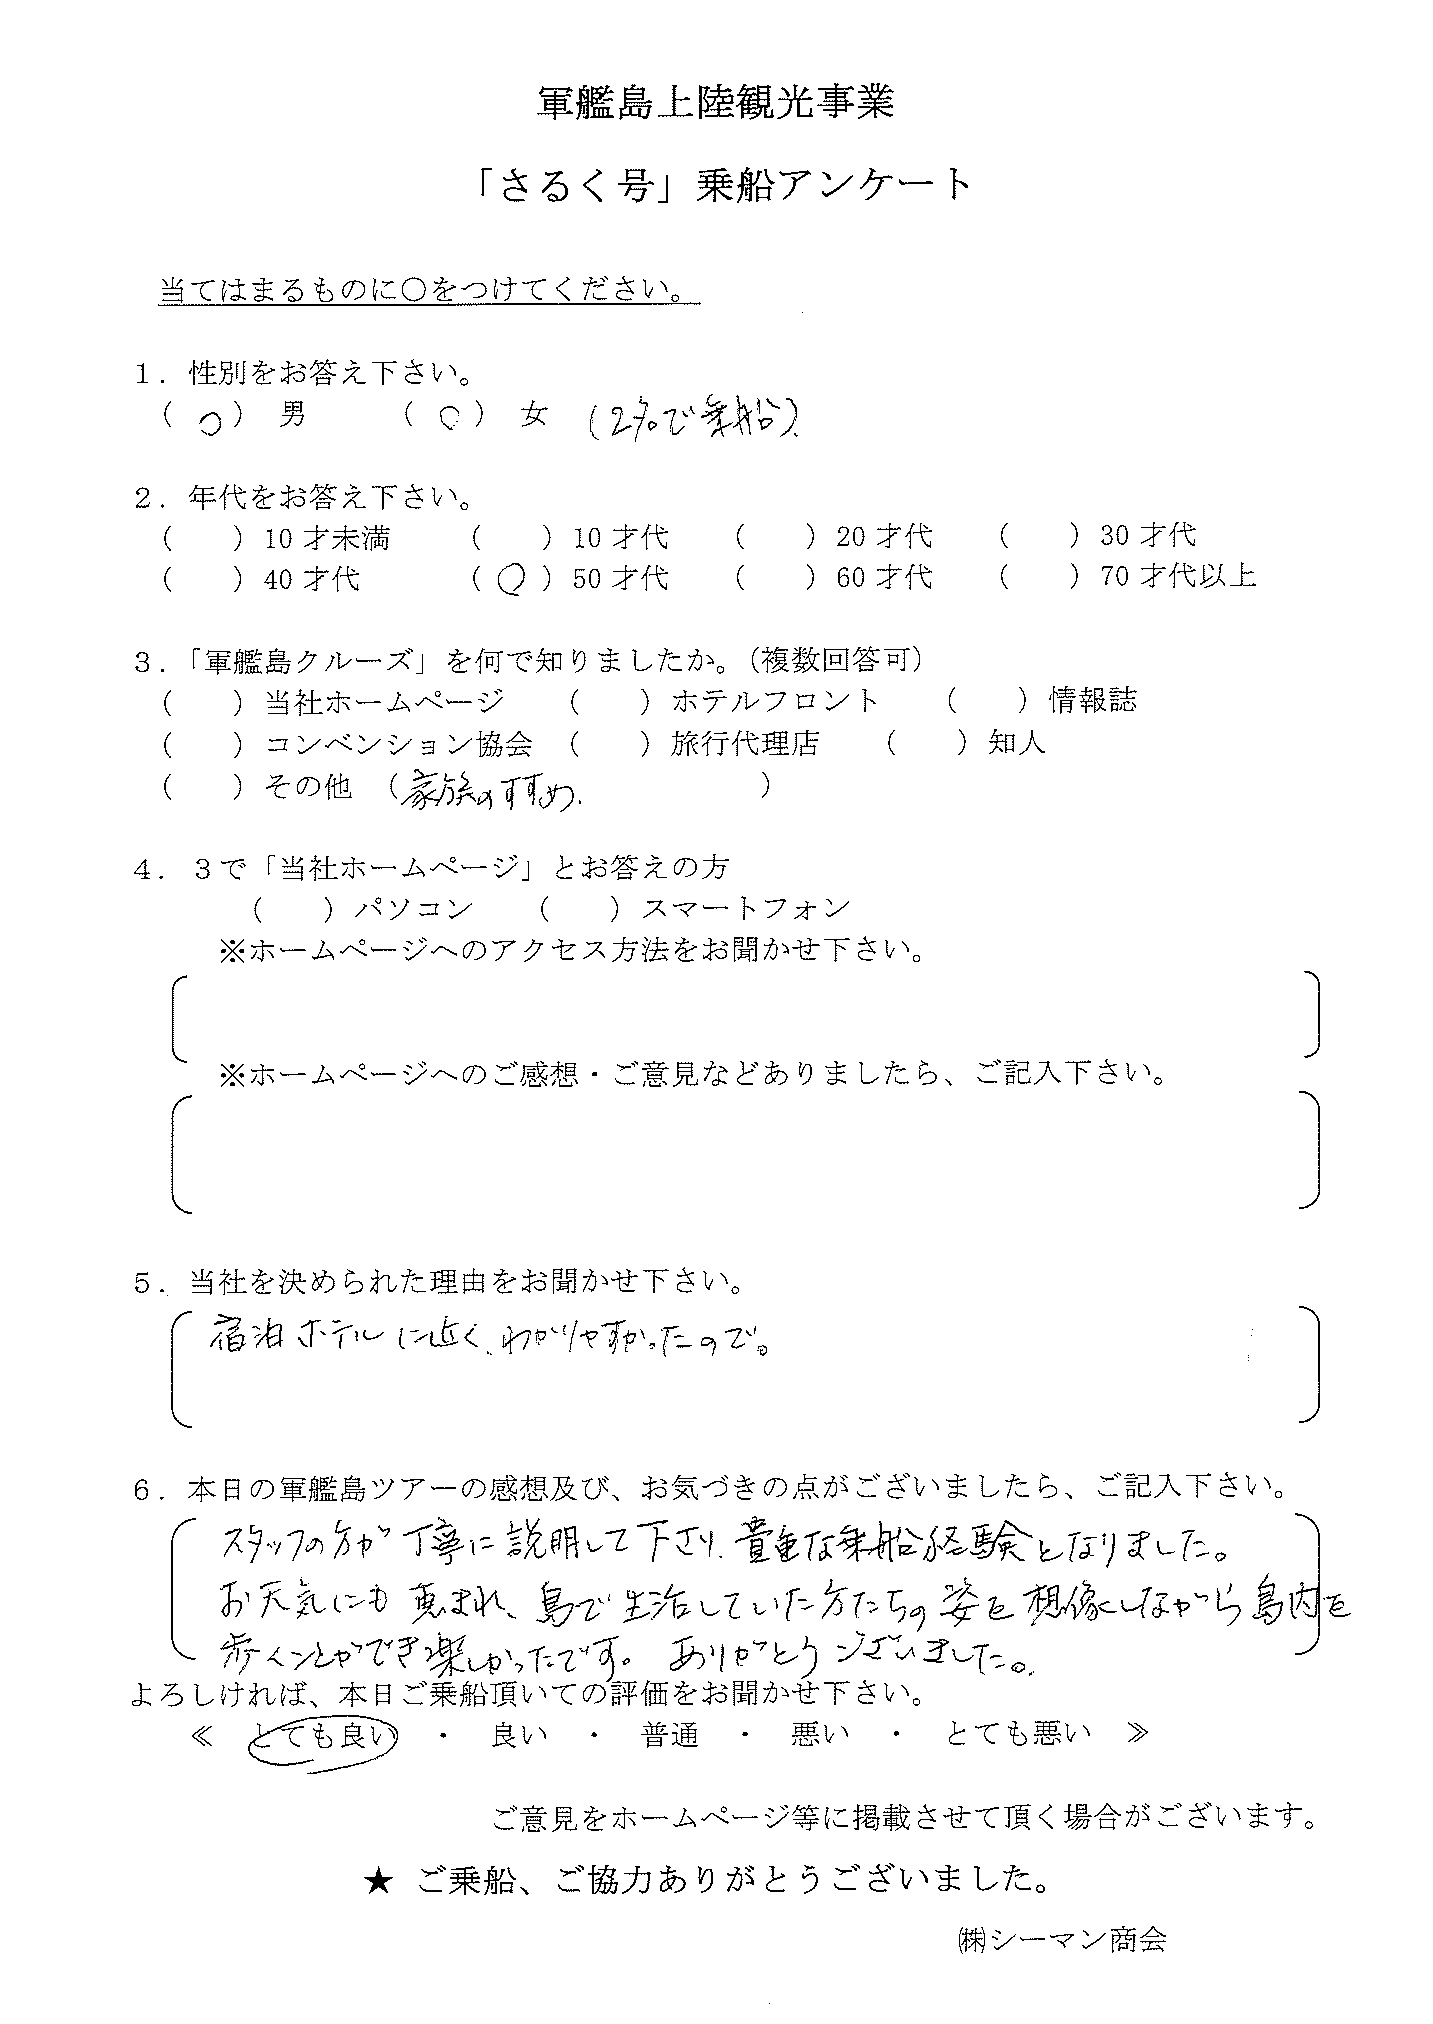 軍艦島上陸観光事業
「さるく号」乗船アンケート
当てはまるものに○をつけてください。
1．性別をお答え下さい。
（ ○ ） 男 （ ○ ） 女 （2名で乗船）
2．年代をお答え下さい。
（ ）10才未満 （ ）10才代 （ ）20才代 （ ）30才代
（ ）40才代 （ ○ ）50才代 （ ）60才代 （ ）70才代以上
3．「軍艦島クルーズ」を何で知りましたか。（複数回答可）
（ ）当社ホームページ （ ）ホテルフロント （ ）情報誌
（ ）コンベンション協会 （ ）旅行代理店 （ ）知人
（ ）その他 （家族のすすめ. ）
4．3で「当社ホームページ」とお答えの方
（ ）パソコン （ ）スマートフォン
※ホームページへのアクセス方法をお聞かせ下さい。
※ホームページへのご感想・ご意見などありましたら、ご記入下さい。
5．当社を決められた理由をお聞かせ下さい。
宿泊ホテルに近く、わかりやすかったので。
6．本日の軍艦島ツアーの感想及び、お気づきの点がございましたら、ご記入下さい。
スタッフの方が丁寧に説明して下さり、貴重な乗船経験となりました。
お天気にも恵まれ、島で生活していた方たちの姿を想像しながら島内を
歩くことができ楽しかったです。ありがとうございました。
よろしければ、本日ご乗船頂いての評価をお聞かせ下さい。
≪ とても良い ・ 良い ・ 普通 ・ 悪い ・ とても悪い ≫
ご意見をホームページ等に掲載させて頂く場合がございます。
★ ご乗船、ご協力ありがとうございました。
㈱シーマン商会